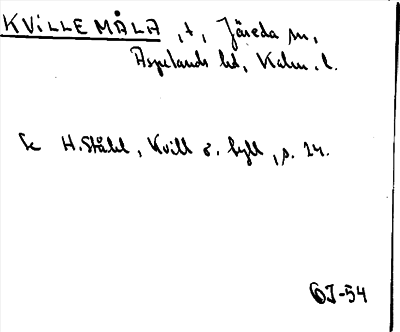 KVILLEMÅLA, t, Järeda sn,
Aspelands hd, Kalm. l.
Se H. Ståhl, Kvill o. hyll, s. 24.
OJ-54